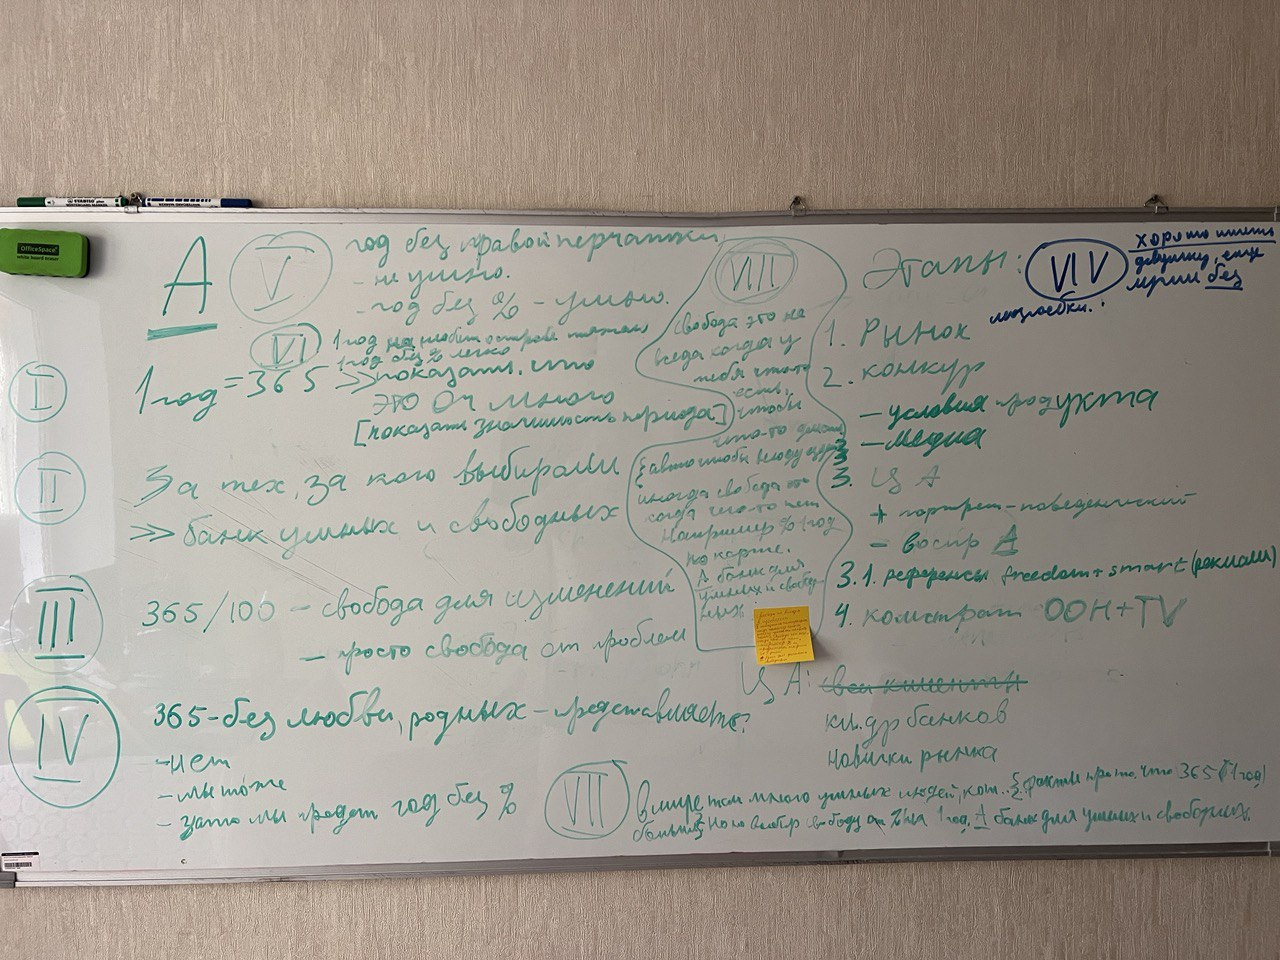 OfficeSpace
white board eraser
А
V
год без правой перчатки
- не умно.
- год без % - умно.
VI
1 год на необит острове тяжело
1 год без % легко
I
1 год = 365 >> показать, что
это оч много
[показать значимость периода]
II
За тех, за кого выбирали
>> банк умных и свободных
III
365/100 - свобода для изменений
- просто свобода от проблем
IV
365 - без любви, родных - представляете?
- нет
- мы тоже
- зато мы продет год без %
VIII
свобода это не
всегда когда у
тебя что-то
есть,
чтобы
что-то делать
{авто чтобы
иногда свобода это
когда чего-то нет
Например % 1 год
по карте.
А банк для
умных и свобод-
ных
Этапы:
VIV
хорошо иметь
девушку, ещё
без
1. Рынок
2. конкур
- условия продукта
- медиа
3. ЦА
+ портрет - поведенический
- воспр А
3.1. референсы freedom + smart (реклами)
4. комстрат OOH + TV
ЦА: свои клиенты
кл. др банков
новички рынка
VII
В мире так много умных людей, кот. {факты про то, что 365 (1 год)
больше} но го выбер свободу от % на 1 год. А банк для умных и свободных.